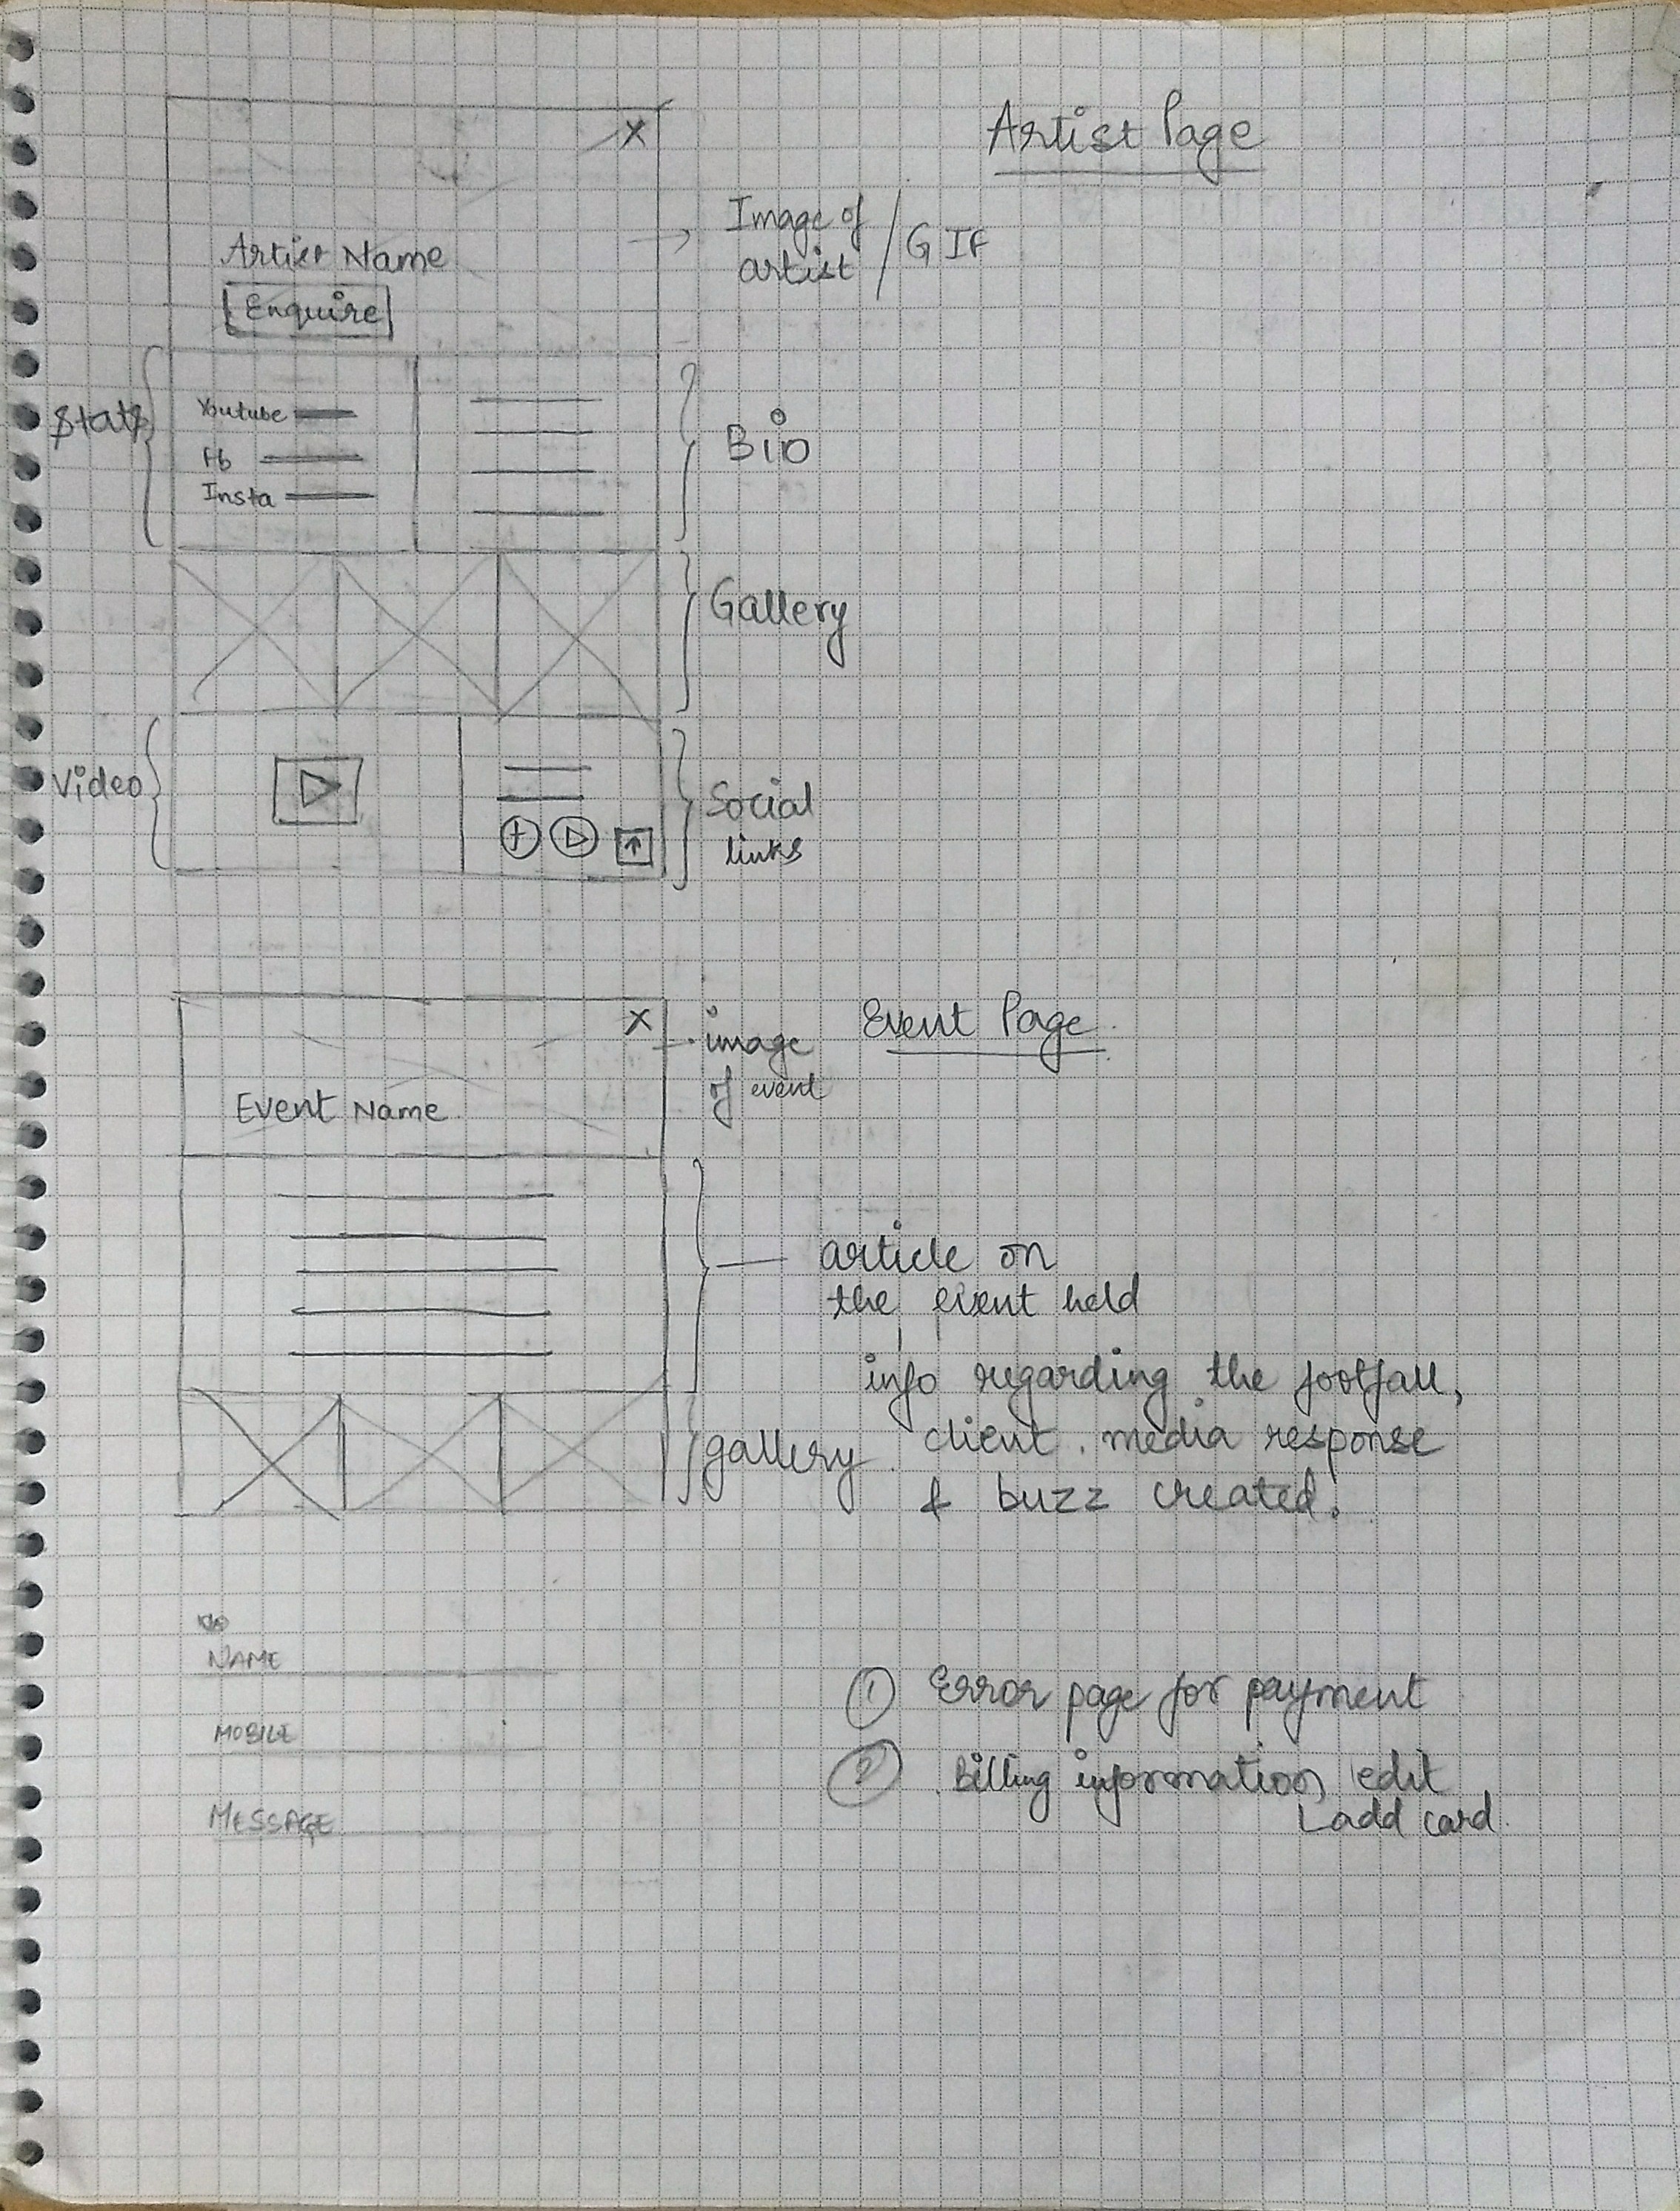 Artist Page
X
Image of
artist / GIF
Artist Name
Enquire
Stats
Youtube
Fb
Insta
Bio
Gallery
Video
Social
links
X
image
of event
Event Page
Event Name
article on
the event held
info regarding the footfall,
client, media response
& buzz created.
gallery
NAME
MOBILE
MESSAGE
1 Error page for payment
2 Billing information edit
add card